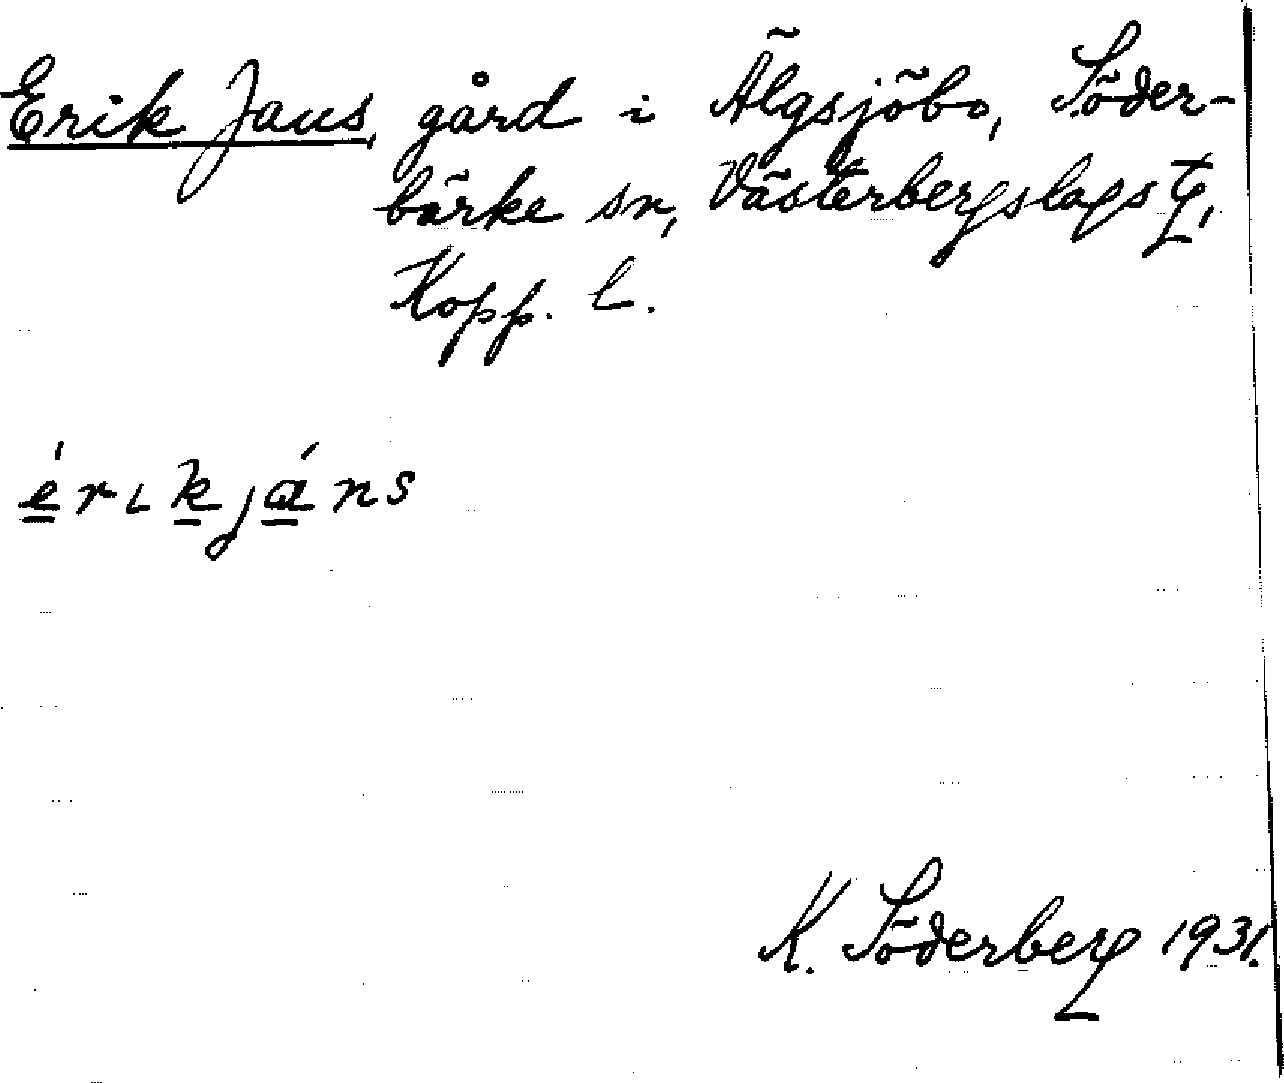 Erik Jans, gård i Älgsjöbo, Söder-
bärke sn, Västerbergslags tg,
Kopp. l.
érikjáns
K. Söderberg 1931.